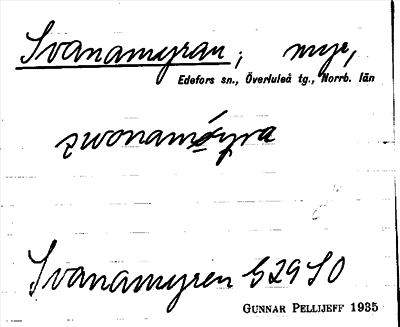 Svanamyran, myr,
Edefors sn., Överluleå tg., Norrb. län
Svanamyren G29SO
GUNNAR PELLIJEFF 1935